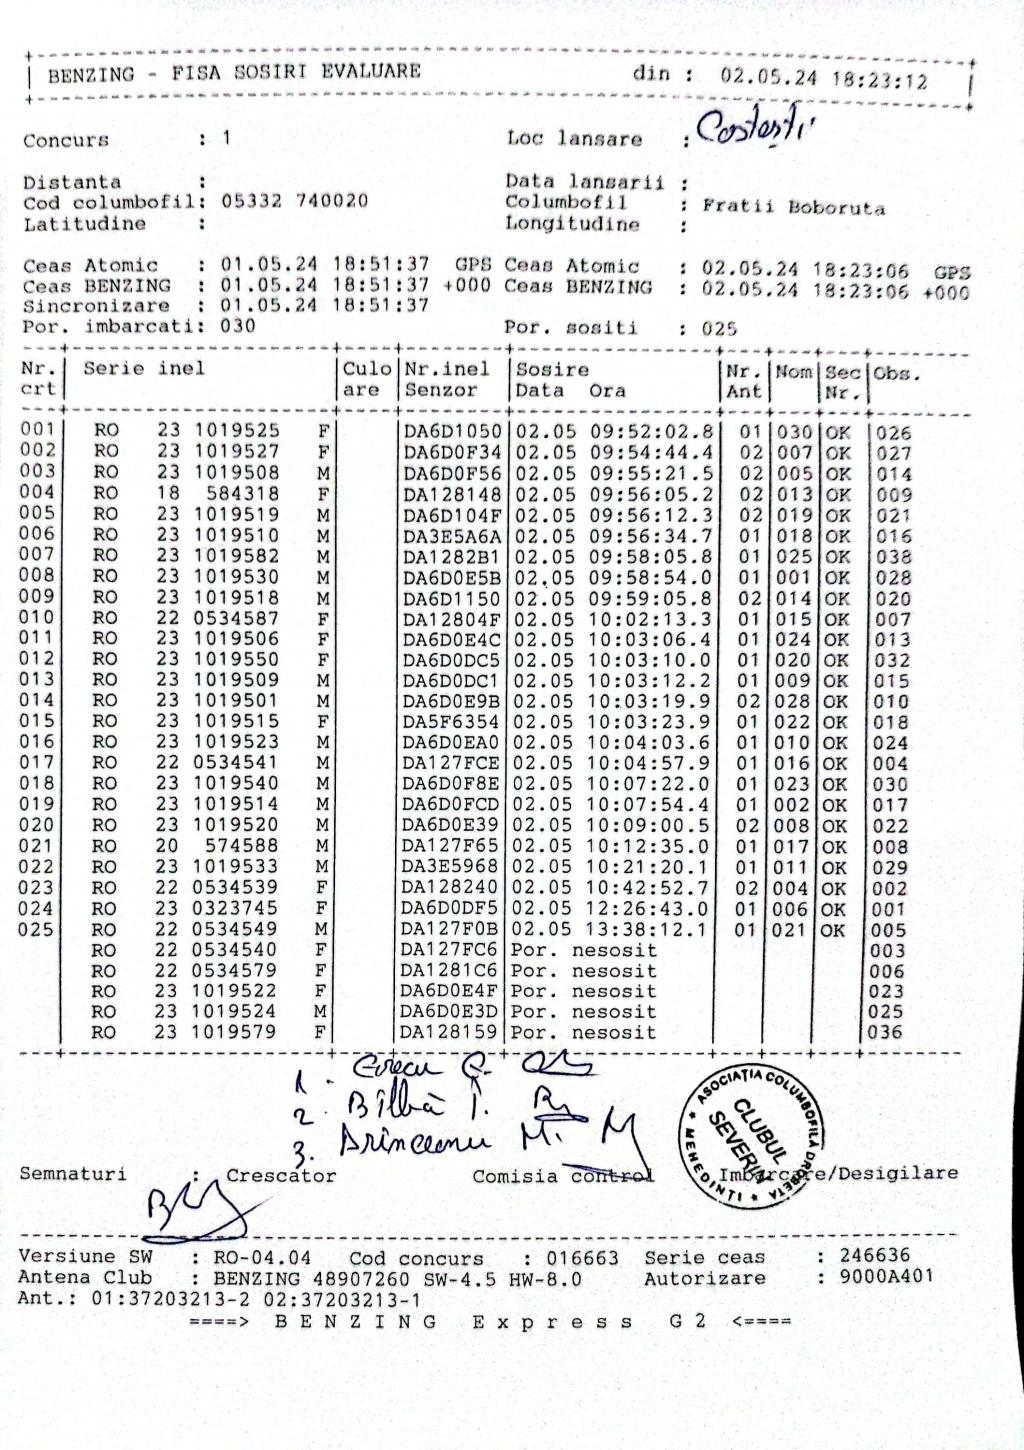 BENZING - FISA SOSIRI EVALUARE din : 02.05.24 18:23:12
Concurs : 1 Loc lansare : Costesti
Distanta : Data lansarii :
Cod columbofil: 05332 740020 Columbofil : Fratii Boboruta
Latitudine : Longitudine :
Ceas Atomic : 01.05.24 18:51:37 GPS Ceas Atomic : 02.05.24 18:23:06 GPS
Ceas BENZING : 01.05.24 18:51:37 +000 Ceas BENZING : 02.05.24 18:23:06 +000
Sincronizare : 01.05.24 18:51:37
Por. imbarcati: 030 Por. sositi : 025
Nr. Serie inel Culo Nr.inel Sosire Nr. Nom Sec Obs.
crt are Senzor Data Ora Ant Nr.
001 RO 23 1019525 F DA6D1050 02.05 09:52:02.8 01 030 OK 026
002 RO 23 1019527 F DA6D0F34 02.05 09:54:44.4 02 007 OK 027
003 RO 23 1019508 M DA6D0F56 02.05 09:55:21.5 02 005 OK 014
004 RO 18 584318 F DA128148 02.05 09:56:05.2 02 013 OK 009
005 RO 23 1019519 M DA6D104F 02.05 09:56:12.3 02 019 OK 021
006 RO 23 1019510 M DA3E5A6A 02.05 09:56:34.7 01 018 OK 016
007 RO 23 1019582 M DA1282B1 02.05 09:58:05.8 01 025 OK 038
008 RO 23 1019530 M DA6D0E5B 02.05 09:58:54.0 01 001 OK 028
009 RO 23 1019518 M DA6D1150 02.05 09:59:05.8 02 014 OK 020
010 RO 22 0534587 F DA12804F 02.05 10:02:13.3 01 015 OK 007
011 RO 23 1019506 F DA6D0E4C 02.05 10:03:06.4 01 024 OK 013
012 RO 23 1019550 F DA6D0DC5 02.05 10:03:10.0 01 020 OK 032
013 RO 23 1019509 M DA6D0DC1 02.05 10:03:12.2 01 009 OK 015
014 RO 23 1019501 M DA6D0E9B 02.05 10:03:19.9 02 028 OK 010
015 RO 23 1019515 F DA5F6354 02.05 10:03:23.9 01 022 OK 018
016 RO 23 1019523 M DA6D0EA0 02.05 10:04:03.6 01 010 OK 024
017 RO 22 0534541 M DA127FCE 02.05 10:04:57.9 01 016 OK 004
018 RO 23 1019540 M DA6D0F8E 02.05 10:07:22.0 01 023 OK 030
019 RO 23 1019514 M DA6D0FCD 02.05 10:07:54.4 01 002 OK 017
020 RO 23 1019520 M DA6D0E39 02.05 10:09:00.5 02 008 OK 022
021 RO 20 574588 M DA127F65 02.05 10:12:35.0 01 017 OK 008
022 RO 23 1019533 M DA3E5968 02.05 10:21:20.1 01 011 OK 029
023 RO 22 0534539 F DA128240 02.05 10:42:52.7 02 004 OK 002
024 RO 23 0323745 F DA6D0DF5 02.05 12:26:43.0 01 006 OK 001
025 RO 22 0534549 M DA127F0B 02.05 13:38:12.1 01 021 OK 005
RO 22 0534540 F DA127FC6 Por. nesosit 003
RO 22 0534579 F DA1281C6 Por. nesosit 006
RO 23 1019522 F DA6D0E4F Por. nesosit 023
RO 23 1019524 M DA6D0E3D Por. nesosit 025
RO 23 1019579 F DA128159 Por. nesosit 036
1.
2. Bîlbă I.
3. Drînceanu M.
ASOCIAȚIA COLUMBOFILĂ DROBETA * MEHEDINTI *
CLUBUL
SEVERIN
Semnaturi : Crescator Comisia control Imbarcare/Desigilare
Versiune SW : RO-04.04 Cod concurs : 016663 Serie ceas : 246636
Antena Club : BENZING 48907260 SW-4.5 HW-8.0 Autorizare : 9000A401
Ant.: 01:37203213-2 02:37203213-1
====> B E N Z I N G E x p r e s s G 2 <====